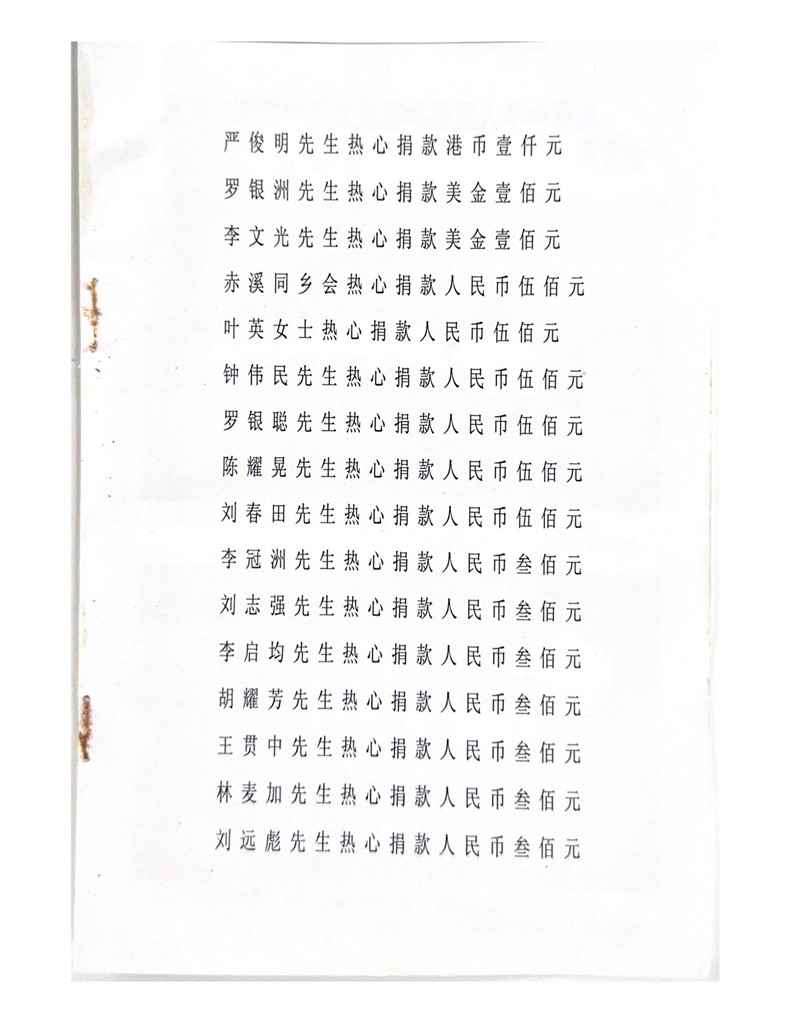 严俊明先生热心捐款港币壹仟元
罗银洲先生热心捐款美金壹佰元
李文光先生热心捐款美金壹佰元
赤溪同乡会热心捐款人民币伍佰元
叶英女士热心捐款人民币伍佰元
钟伟民先生热心捐款人民币伍佰元
罗银聪先生热心捐款人民币伍佰元
陈耀晃先生热心捐款人民币伍佰元
刘春田先生热心捐款人民币伍佰元
李冠洲先生热心捐款人民币叁佰元
刘志强先生热心捐款人民币叁佰元
李启均先生热心捐款人民币叁佰元
胡耀芳先生热心捐款人民币叁佰元
王贯中先生热心捐款人民币叁佰元
林麦加先生热心捐款人民币叁佰元
刘远彪先生热心捐款人民币叁佰元